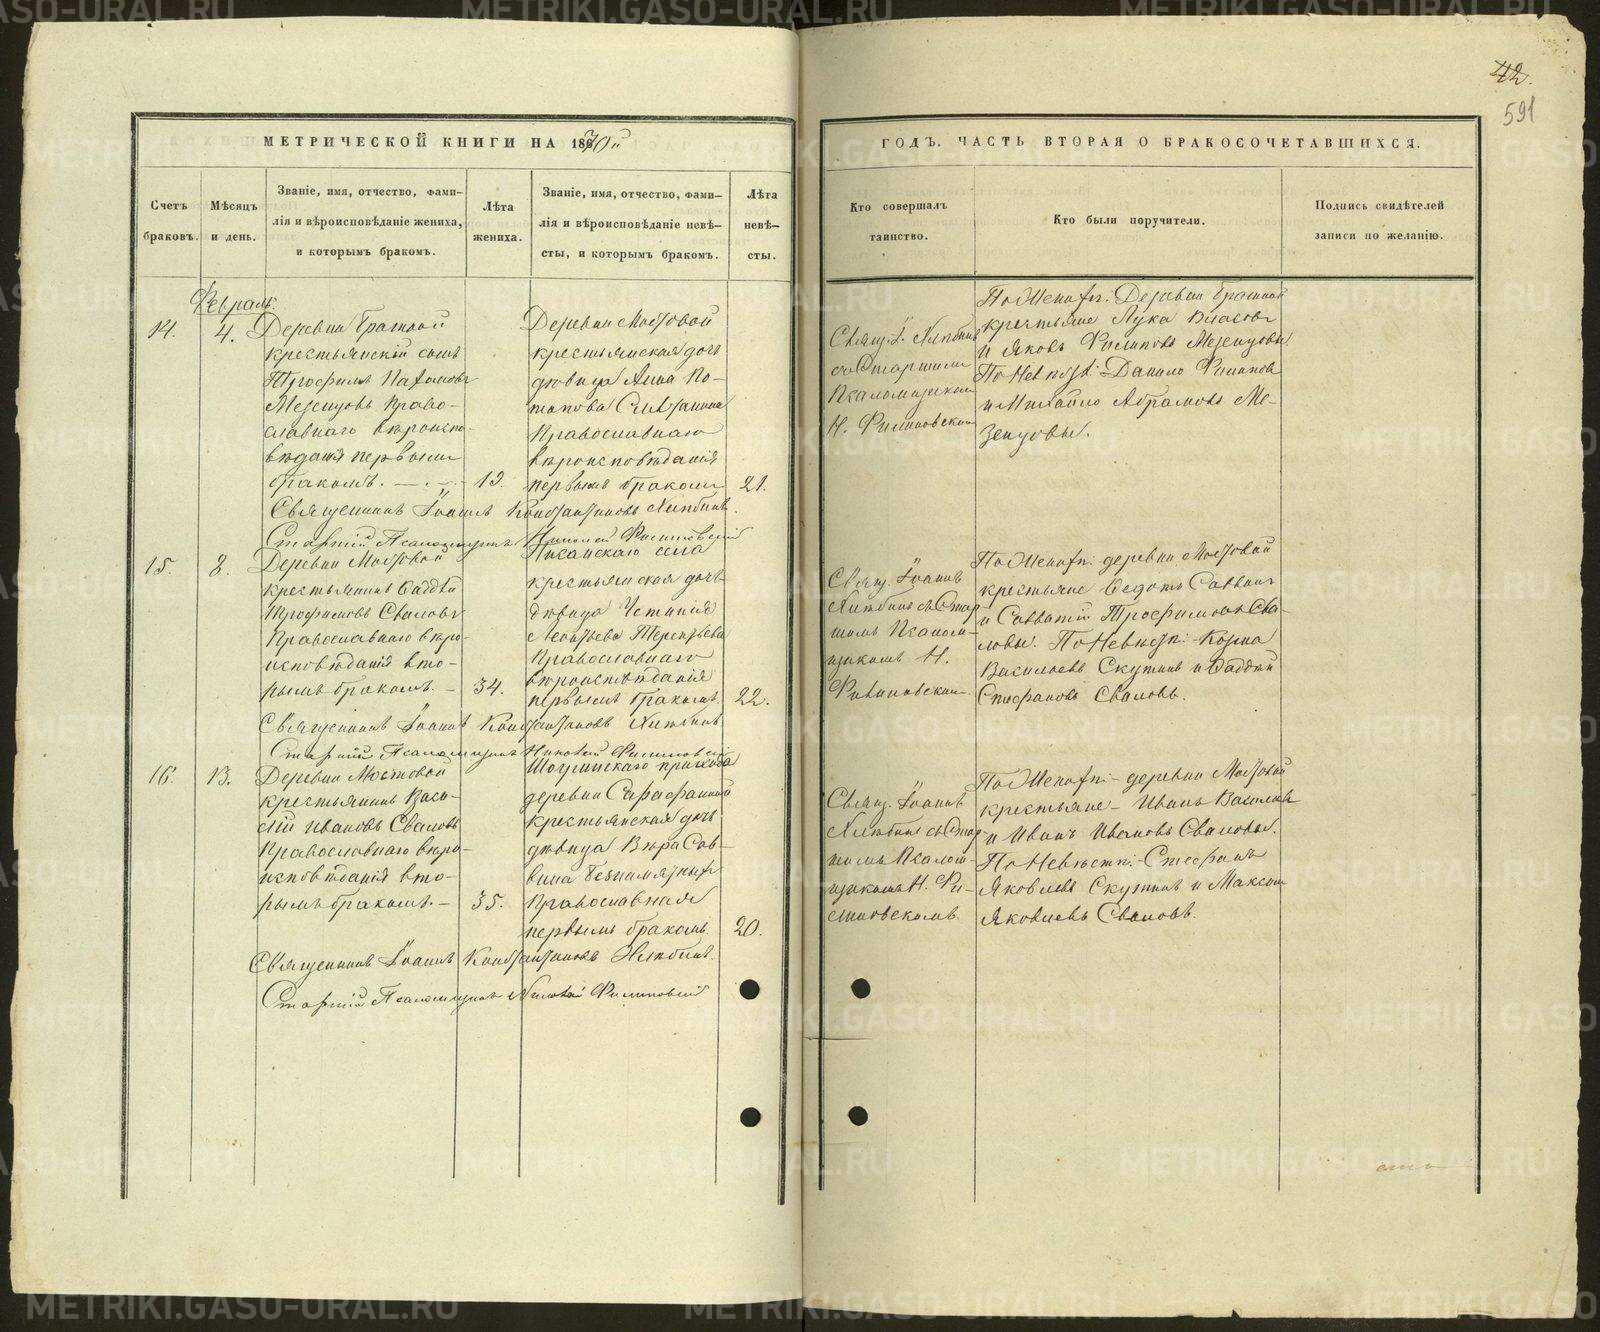 42.
591
МЕТРИЧЕСКОЙ КНИГИ НА 1870й
ГОДЪ, ЧАСТЬ ВТОРАЯ О БРАКОСОЧЕТАВШИХСЯ.
Счетъ
браковъ.
Мѣсяцъ
и день.
Званіе, имя, отчество, фами-
лія и вѣроисповѣданіе жениха,
и которымъ бракомъ.
Лѣта
жениха.
Званіе, имя, отчество, фами-
лія и вѣроисповѣданіе невѣ-
сты, и которымъ бракомъ.
Лѣта
невѣ-
сты.
Кто совершалъ
таинство.
Кто были поручители.
Подпись свидѣтелей
записи по желанію.
Февраль
14.
4.
Деревни
крестьянскій сынъ
Трофимъ Пахомовъ
Мезенцовъ Право-
славнаго вѣроиспо-
вѣданія первымъ
бракомъ.
19.
Деревни Мостовой
крестьянская дочь
дѣвица Анна По-
тапова
Православнаго
вѣроисповѣданія
первымъ бракомъ
21.
Свящ. І.
со Старшимъ
Псаломщикомъ
Н. Филиповскимъ
По Жених: Деревни
крестьяне Лука Власовъ
и Яковъ Филиповъ Мезенцовы
По Невѣст: Данило Филиповъ
и Михайло Абрамовъ Ме-
зенцовы.
Священникъ Іоаннъ Константиновъ
Старшій Псаломщикъ Николай Филиповскій
15.
8.
Деревни Мостовой
крестьянинъ Фаддей
Трофимовъ Сваловъ
Православнаго вѣро-
исповѣданія вто-
рымъ бракомъ.
34.
села
крестьянская дочь
дѣвица Устинія
Леонтьева Терентьева
Православнаго
вѣроисповѣданія
первымъ бракомъ.
22.
Свящ. Іоаннъ
съ Стар-
шимъ Псалом-
щикомъ Н.
Филиповскимъ.
По Жених: деревни Мостовой
крестьяне Федотъ Саввинъ
и Савватій Трофимовъ Сва-
ловы. По Невѣст: Козма
Васильевъ Скутинъ и Фаддей
Стефановъ Сваловъ.
Священникъ Іоаннъ Константиновъ
Старшій Псаломщикъ Николай Филиповскій
16.
13.
Деревни Мостовой
крестьянинъ Васи-
лій Ивановъ Сваловъ
Православнаго вѣро-
исповѣданія вто-
рымъ бракомъ.
35.
прихода
деревни Сарафанной
крестьянская дочь
дѣвица Вѣра Сав-
вина Безпамятныхъ
Православная
первымъ бракомъ.
20.
Свящ. Іоаннъ
съ Стар-
шимъ Псалом-
щикомъ Н. Фи-
липовскимъ.
По Жених: деревни Мостовой
крестьяне Иванъ Васильевъ
и Иванъ Ивановъ Сваловы.
По Невѣст: Стефанъ
Яковлевъ Скутинъ и Максимъ
Яковлевъ Сваловъ.
Священникъ Іоаннъ Константиновъ
Старшій Псаломщикъ Николай Филиповскій
METRIKI.GASO-URAL.RU